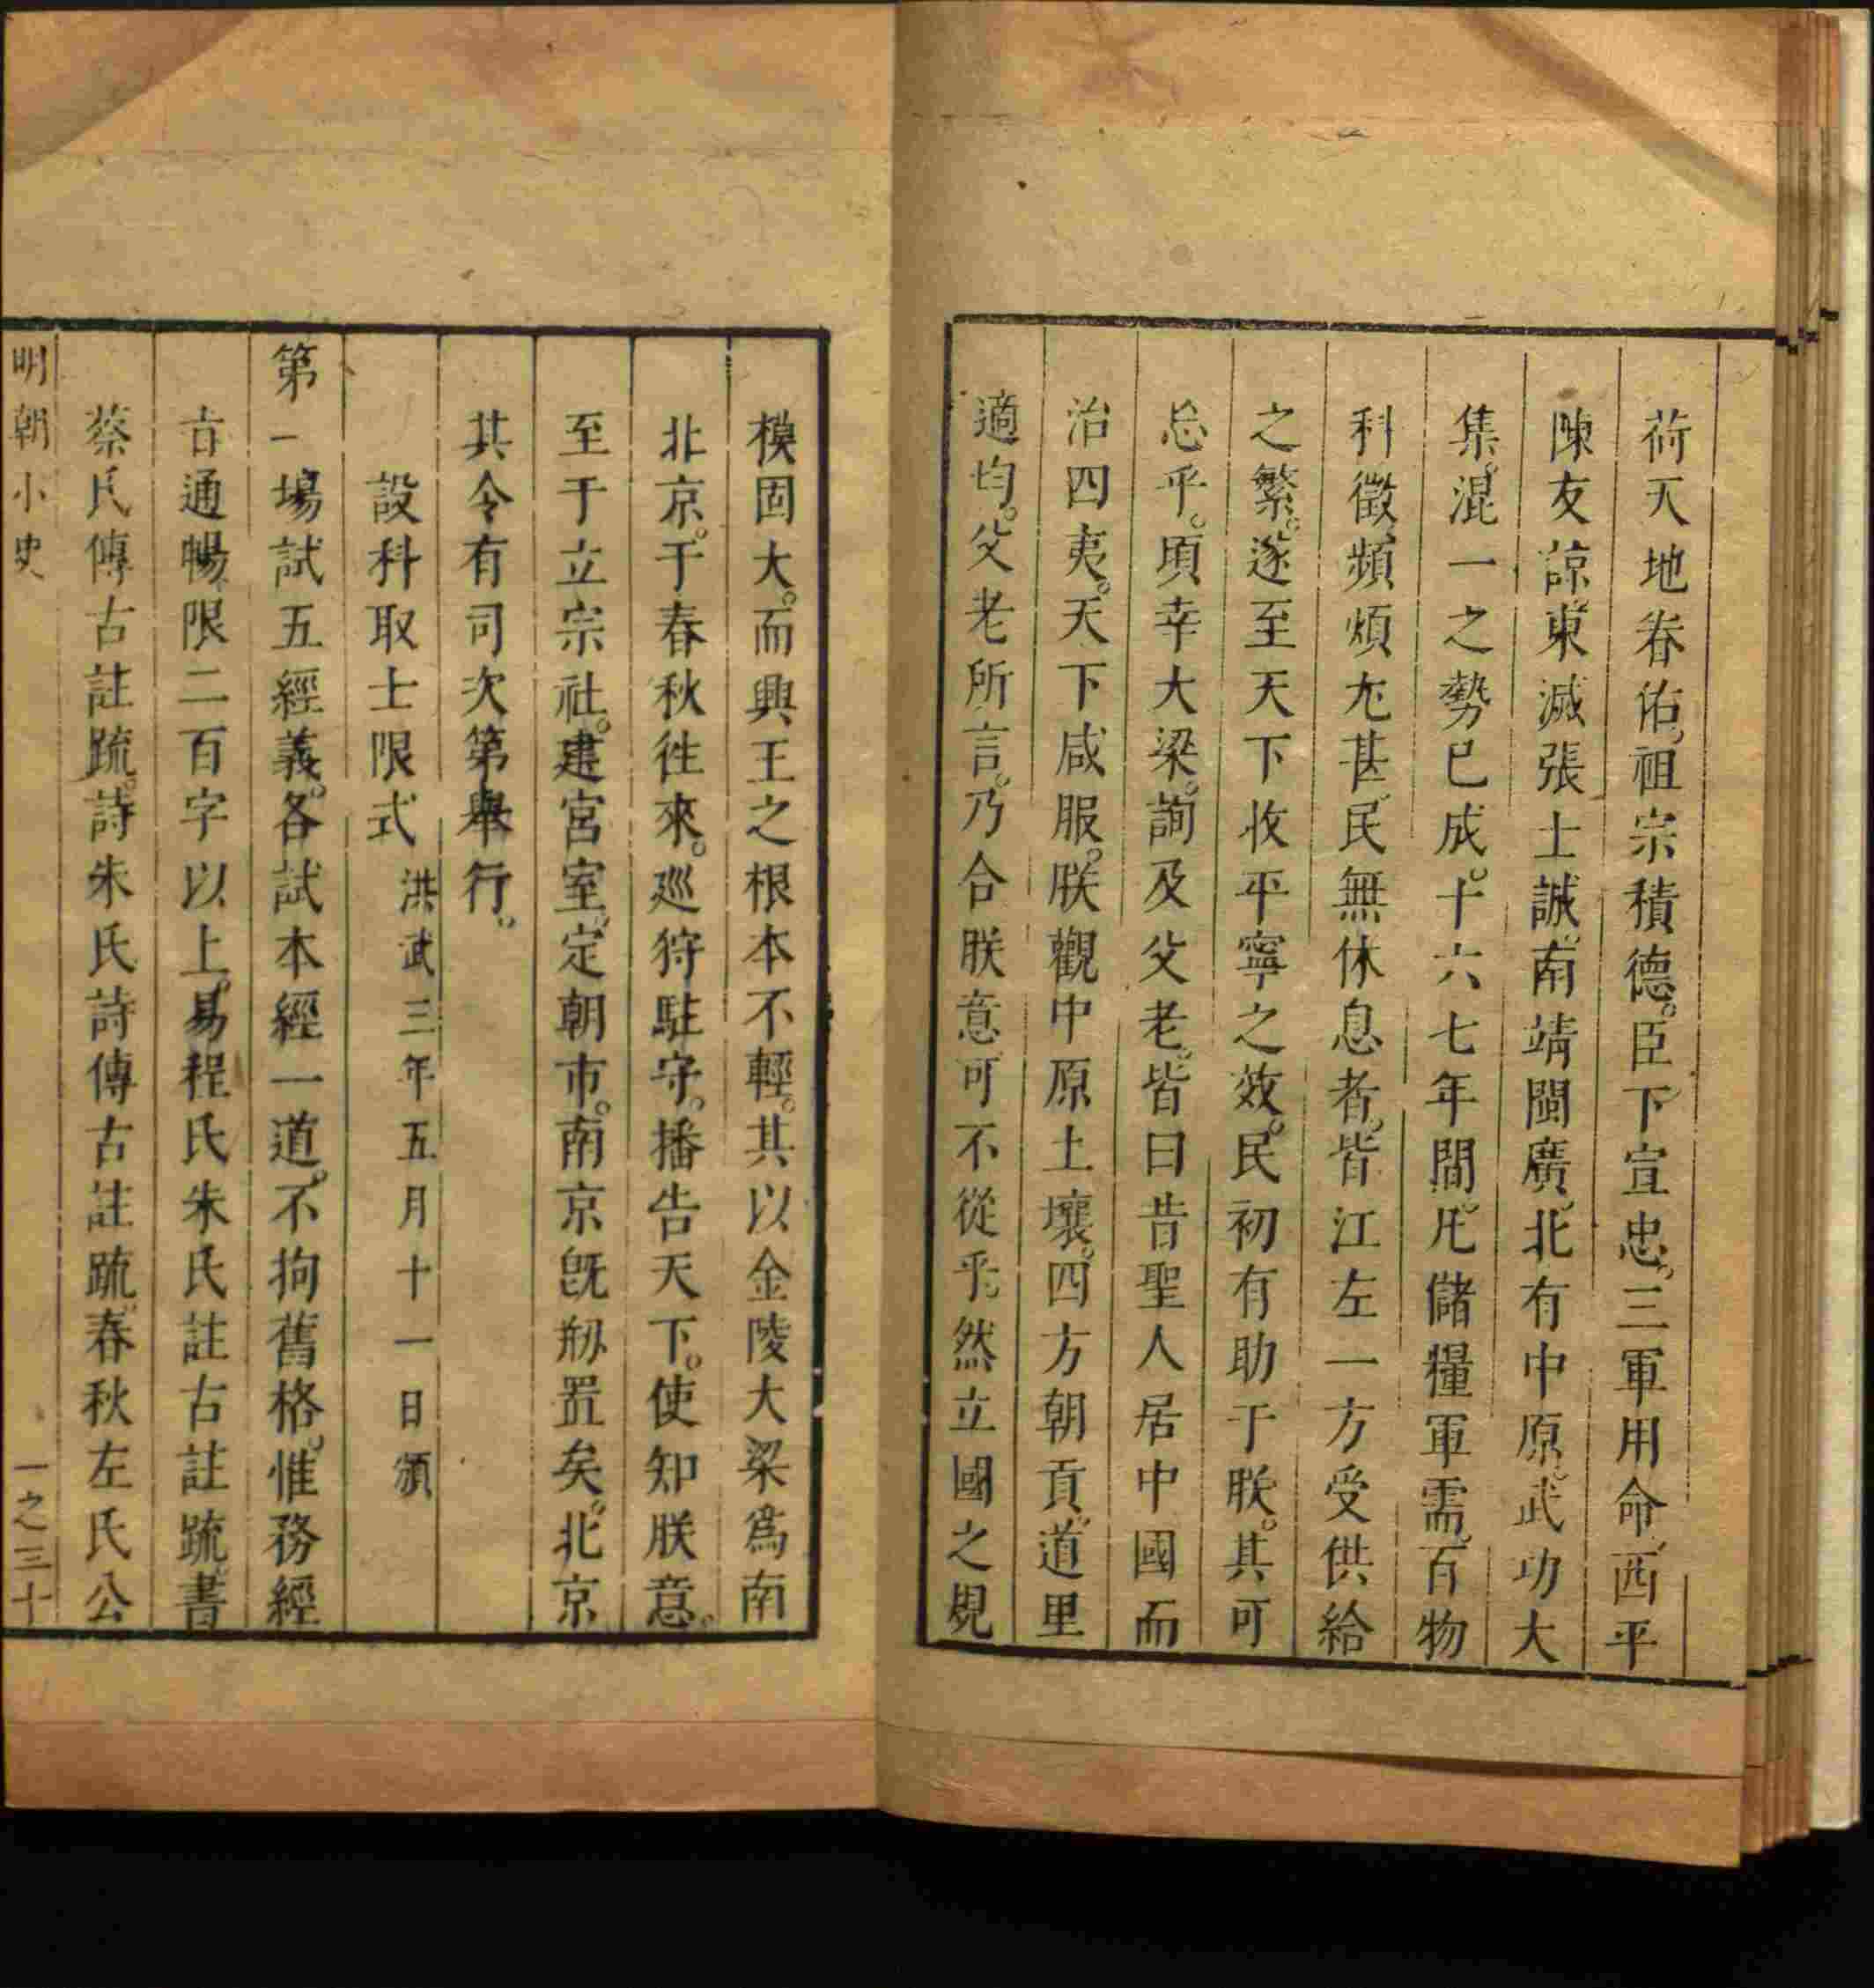 荷天地眷佑祖宗積德。臣下宣忠三軍用命西平
陳友諒東滅張士誠南靖閩廣北有中原武功大
集混一之勢已成。十六七年間凡儲糧軍需百物
科徵頻煩尤甚民無休息者皆江左一方受供給
之繁。遂至天下收平寧之效。民初有助于朕。其可
忘乎。頃幸大梁。詢及父老。皆曰昔聖人居中國而
治四夷。天下咸服。朕觀中原土壤。四方朝貢道里
適均。父老所言。乃合朕意可不從乎然立國之規
模固大。而興王之根本不輕。其以金陵大梁爲南
北京。于春秋往來。廵狩駐守。播告天下。使知朕意。
至于立宗社。建宮室定朝市。南京旣剏置矣。北京
其令有司次第舉行。
設科取士限式 洪武三年五月十一日頒
第一場試五經義。各試本經一道。不拘舊格。惟務經
旨通暢限二百字以上。易程氏朱氏註古註䟽。書
蔡氏傳古註䟽。詩朱氏詩傳古註䟽。春秋左氏公
明朝小史 一之三十